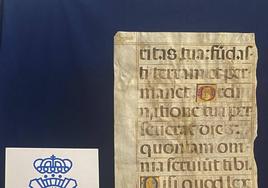 ritas tua: fudas
ti terram et per
manet. Ordi
natione tua per
seuerat dies:
quoniam om
nia seruiut tibi.
Nisi quod lex